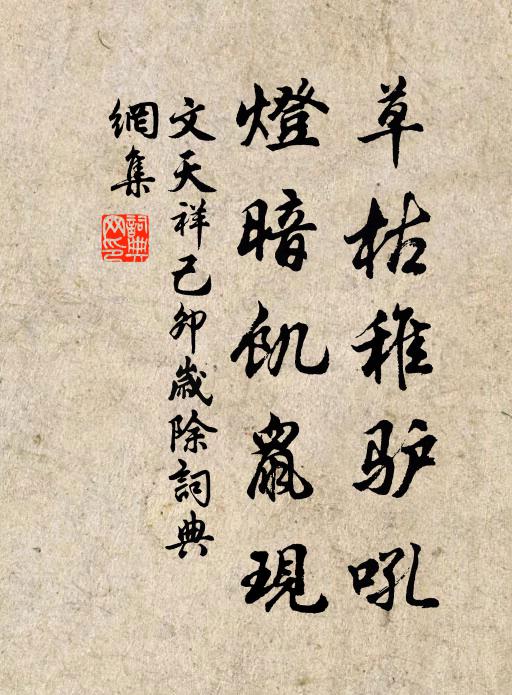 草枯稚驴吼
燈暗飢鼠現
文天祥己卯歲除詞典
網集
詞典网印